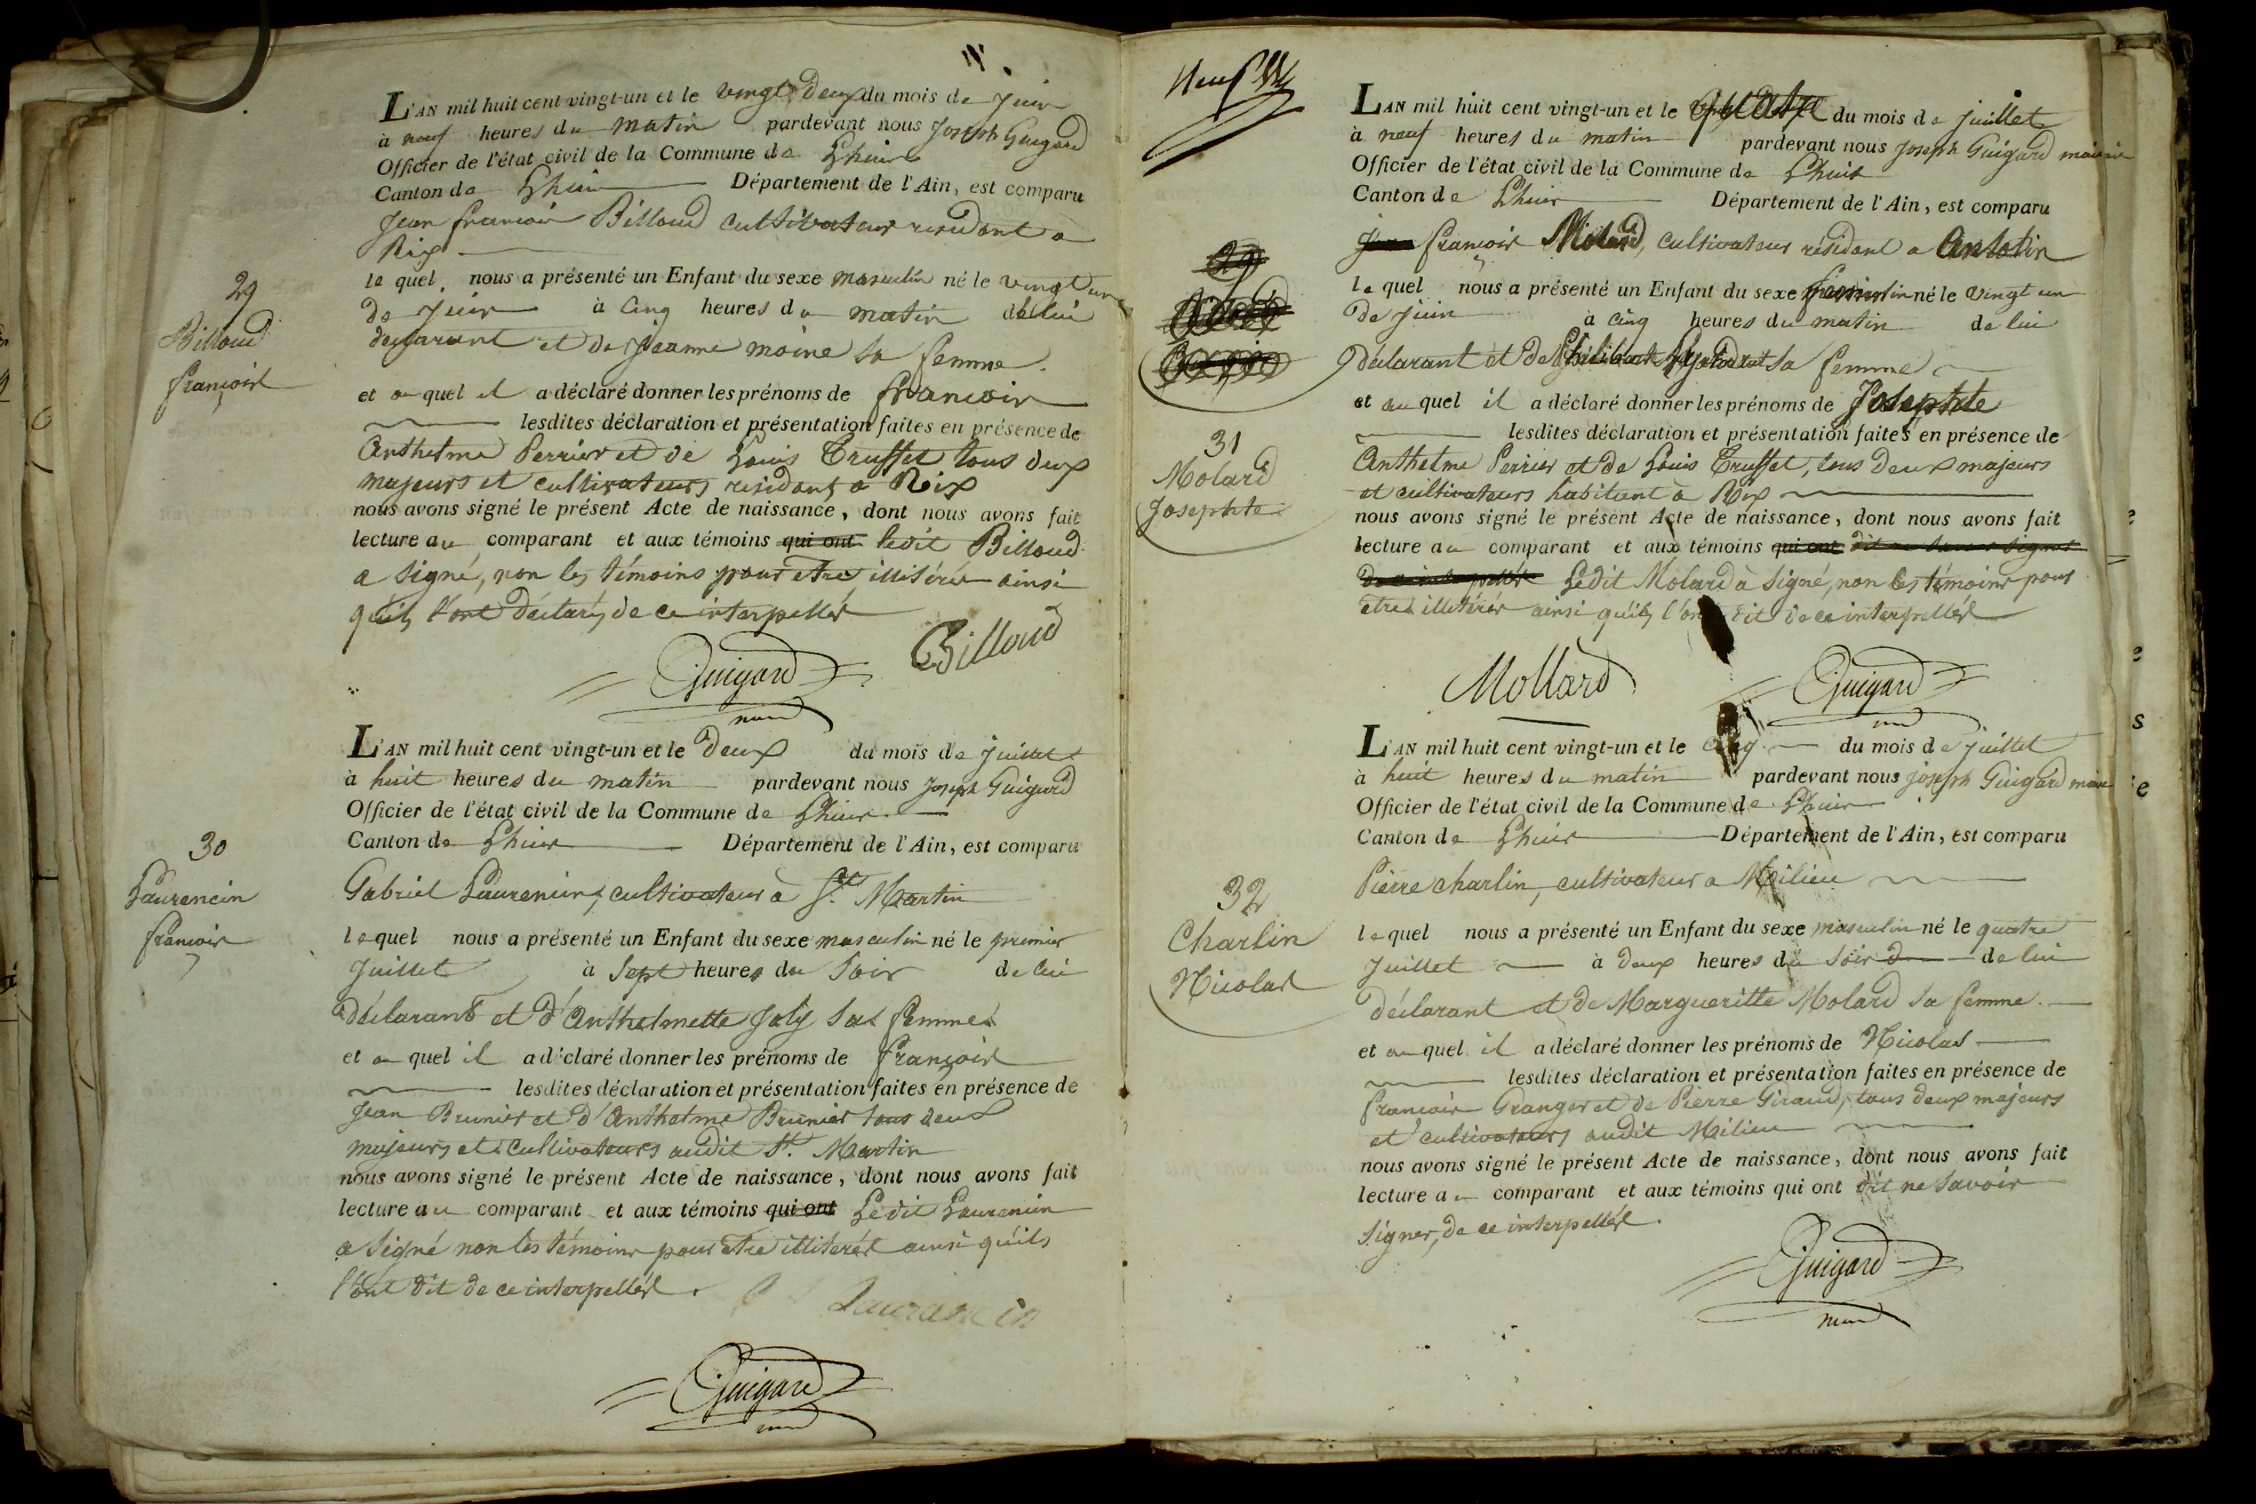 L'AN mil huit cent vingt-un et le vingt deux du mois de juin
à neuf heures du matin pardevant nous Joseph Guigard
Officier de l'état civil de la Commune de Lhuis
Canton de Lhuis Département de l'Ain, est comparu
Jean francois Billoud cultivateur residant a
Rix
29
Billoud
francois
le quel nous a présenté un Enfant du sexe masculin né le vingt un
de juin à cinq heures du matin de lui
declarant et de jeanne moine sa femme.
et au quel il a déclaré donner les prénoms de francois
lesdites déclaration et présentation faites en présence de
Anthelme Perrier et de Louis Truffet tous deux
majeurs et cultivateurs residants a Rix
nous avons signé le présent Acte de naissance, dont nous avons fait
lecture au comparant et aux témoins qui ont ledit Billoud
a signé, non les témoins pour etres illitérés ainsi
qu'ils l'ont déclaré, de ce interpellés
Billoud
Guigard
L'AN mil huit cent vingt-un et le deux du mois de juillet
à huit heures du matin pardevant nous Joseph Guigard
Officier de l'état civil de la Commune de Lhuis
Canton de Lhuis Département de l'Ain, est comparu
30
Laurencin
francois
Gabriel Laurencin, cultivateur à St. Martin
le quel nous a présenté un Enfant du sexe masculin né le premier
Juillet à sept heures du soir de lui
déclarant et d'Anthelmette Joly sa femme
et au quel il a déclaré donner les prénoms de françois
lesdites déclaration et présentation faites en présence de
Jean Brunier et d'Anthelme Brunier tous deux
majeurs et cultivateurs audit St. Martin
nous avons signé le présent Acte de naissance, dont nous avons fait
lecture au comparant et aux témoins qui ont Ledit Laurencin
a signé non les témoins pour etre illiterés ainsi qu'ils
l'ont dit de ce interpellés.
Laurancin
Guigard
Neuf
LAN mil huit cent vingt-un et le quatre du mois de juillet
à neuf heures du matin pardevant nous Joseph Guigard maire
Officier de l'état civil de la Commune de Lhuis
Canton de Lhuis Département de l'Ain, est comparu
Jean françois Molard, cultivateur résidant a Antotin
le quel nous a présenté un Enfant du sexe feminin né le vingt un
de juin à cinq heures du matin de lui
déclarant et de sa femme
et au quel il a déclaré donner les prénoms de Josephte
31
Molard
Josephte
lesdites déclaration et présentation faites en présence de
Anthelme Perrier et de Louis Truffet, tous deux majeurs
et cultivateurs habitant à Rix
nous avons signé le présent Acte de naissance, dont nous avons fait
lecture au comparant et aux témoins qui ont dit ne savoir signer
de ce interpellés Ledit Molard à signé, non les témoins pour
etres illitérés ainsi qu'ils l'ont dit de ce interpellés
Mollard
Guigard
L'AN mil huit cent vingt-un et le cinq du mois de juillet
à huit heures du matin pardevant nous joseph Guigard maire
Officier de l'état civil de la Commune de Lhuis
Canton de Lhuis Département de l'Ain, est comparu
32
Charlin
Nicolas
Pierre charlin, cultivateur a Milieu
le quel nous a présenté un Enfant du sexe masculin né le quatre
Juillet à deux heures du soir de lui
déclarant et de Margueritte Molard sa femme.
et au quel il a déclaré donner les prénoms de Nicolas
lesdites déclaration et présentation faites en présence de
francois Granger et de Pierre Giraud, tous deux majeurs
et cultivateurs audit Milieu
nous avons signé le présent Acte de naissance, dont nous avons fait
lecture au comparant et aux témoins qui ont dit ne savoir
signer, de ce interpellés.
Guigard